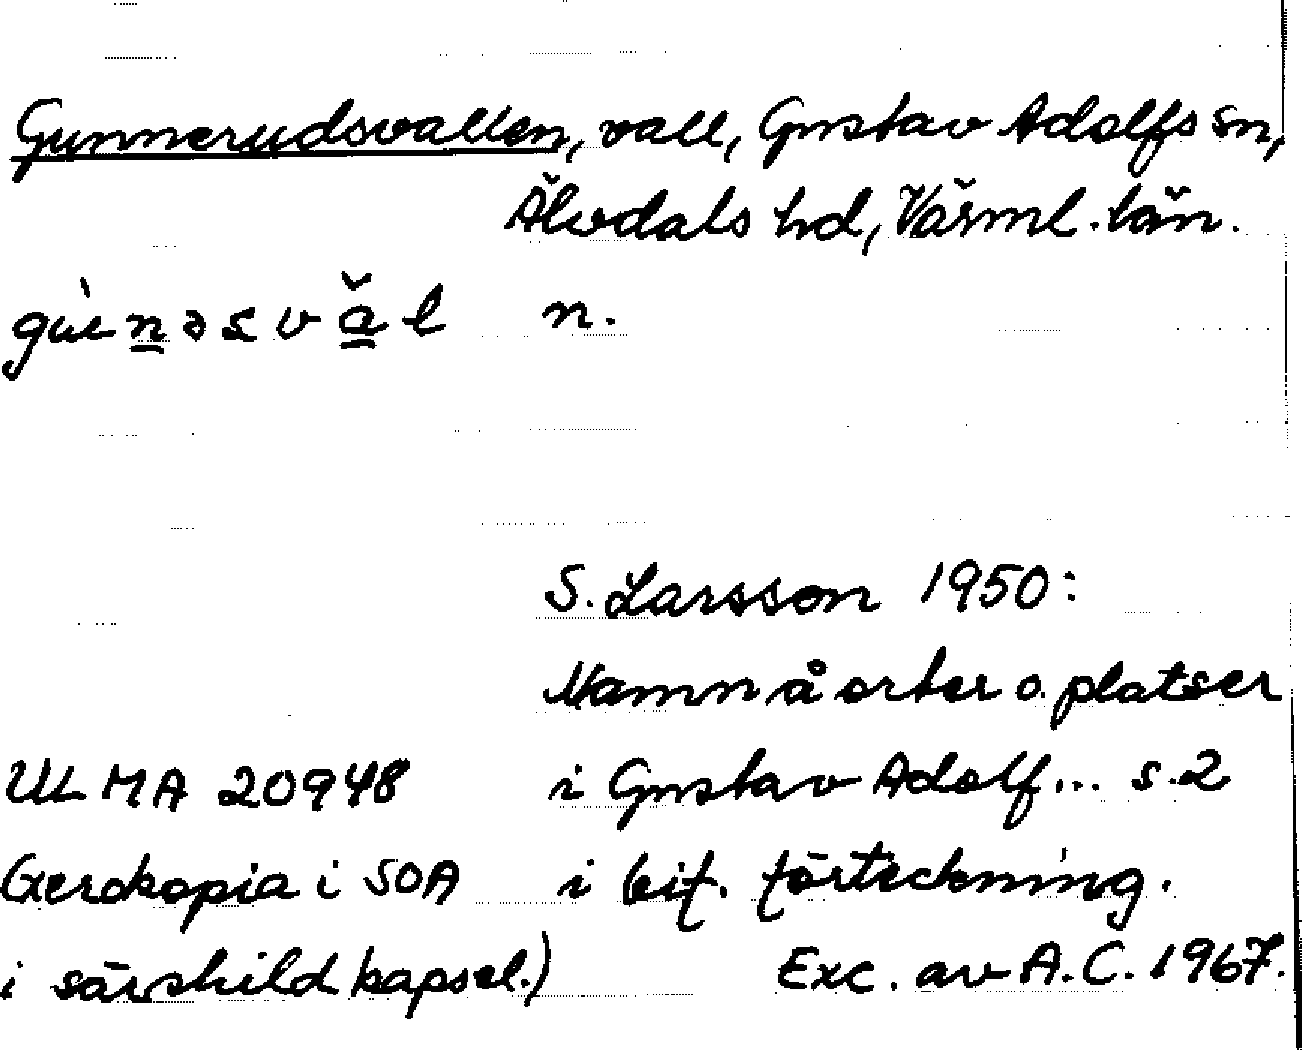 Gunnerudsvallen, vall, Gustav Adolfs sn,
Älvdals hd, Värml. län.
n.
S. Larsson 1950:
Namn å orter o. platser
ULMA 20948 i Gustav Adolf... s. 2
(Xerokopia i SOA i bif. förteckning.
i särskild kapsel.) Exc. av A.C. 1967.